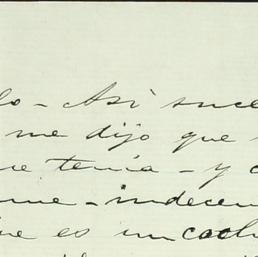 lo - Así suce
me dijo que
ue tenía - y
me - indecen
ue es un coch